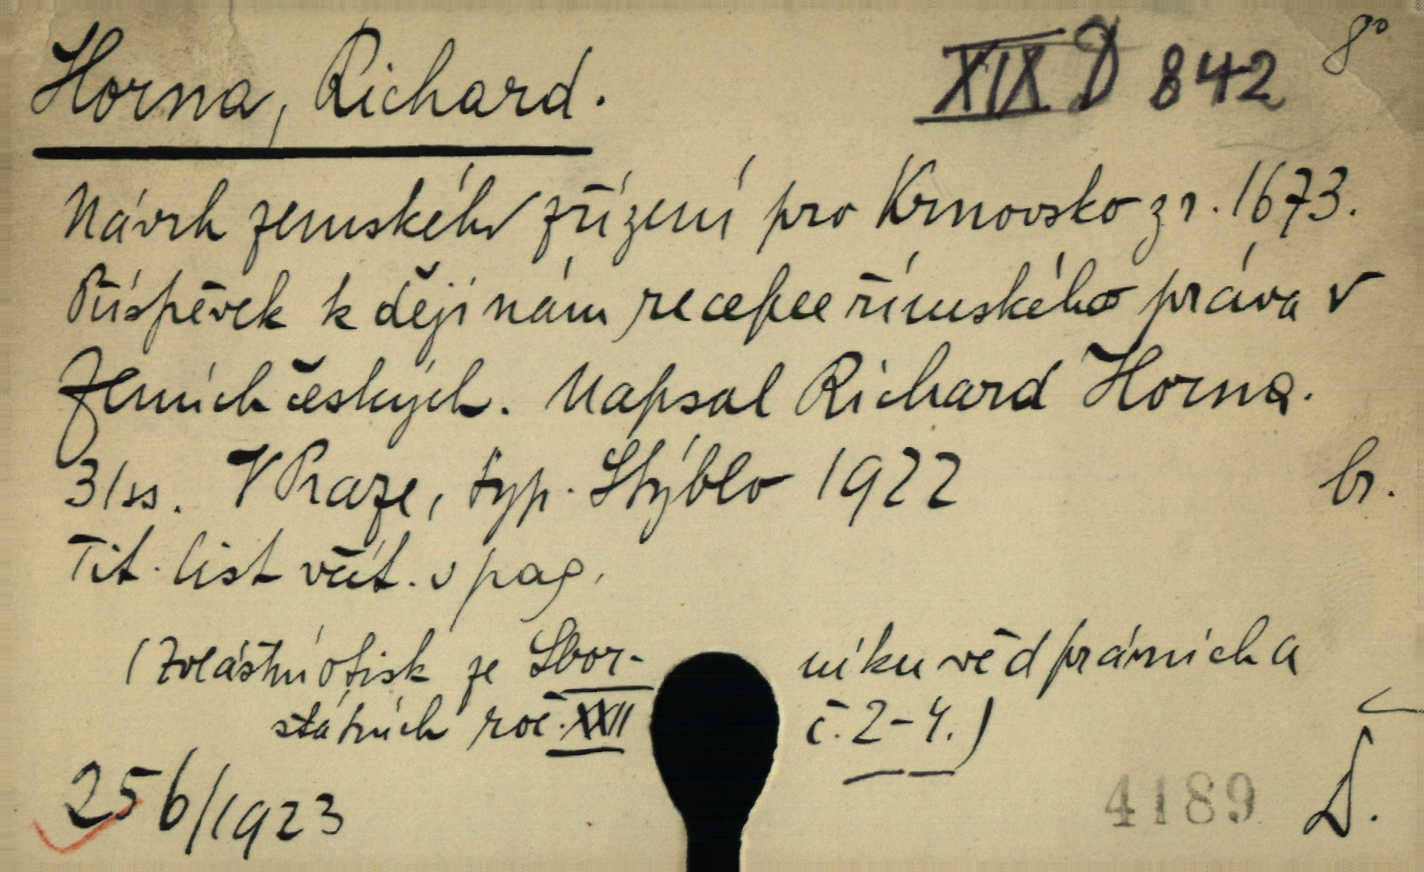 Horna, Richard. XIX D 842 8°
Návrh zemského zřízení pro Krnovsko z r. 1673.
Příspěvek k dějinám recepce římského práva v
zemích českých. Napsal Richard Horna.
31 ss. V Praze, typ. Stýblo 1922 br.
Tit. list včít. v pag.
(Zvláštní otisk ze Sborníku věd právních a
státních roč. XXII č. 2-4.)
256/1923 4189 Š.